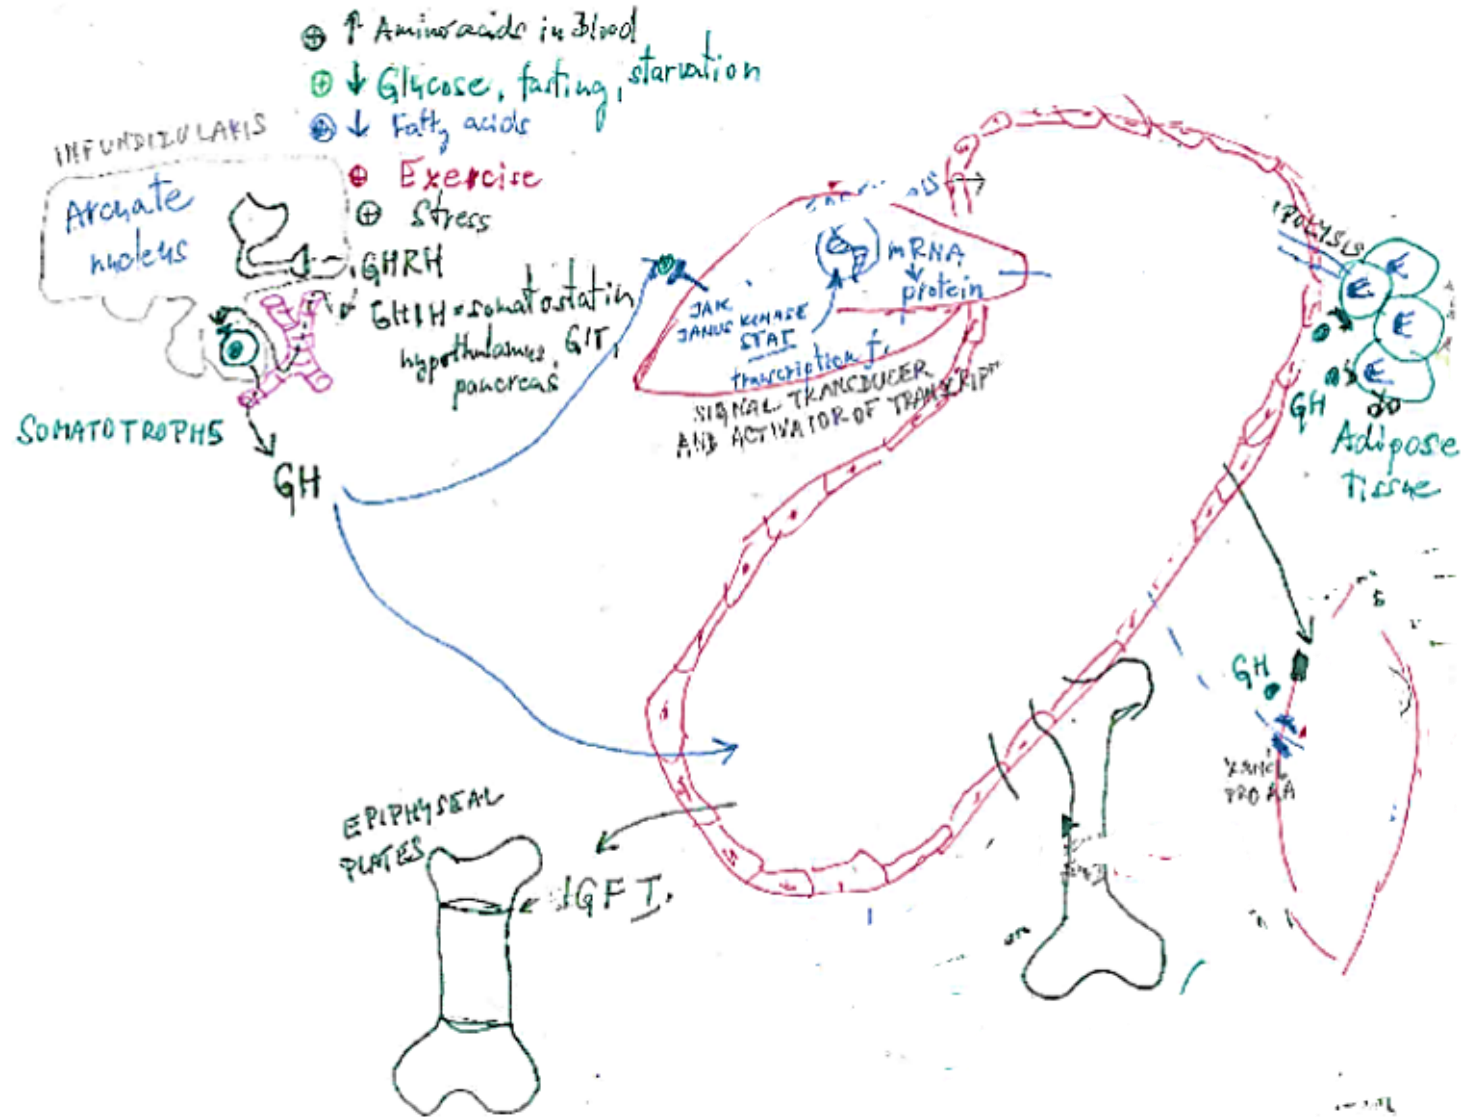 ⊕ ↑ Aminoacids in Blood
⊕ ↓ Glucose, fasting, starvation
⊕ ↓ Fatty acids
⊕ Exercise
⊕ Stress
INFUNDIBULARIS
Arcuate
nucleus
GHRH
GHIH = somatostatin
hypothalamus, GIT,
pancreas
SOMATOTROPHS
GH
mRNA
protein
JAK
JANUS KINASE
STAT
transcription f.
SIGNAL TRANSDUCER
AND ACTIVATOR OF TRANSCRIPTn
LIPOLYSIS
GH
Adipose
tissue
GH
PRO AA
EPIPHYSEAL
PLATES
IGF I.